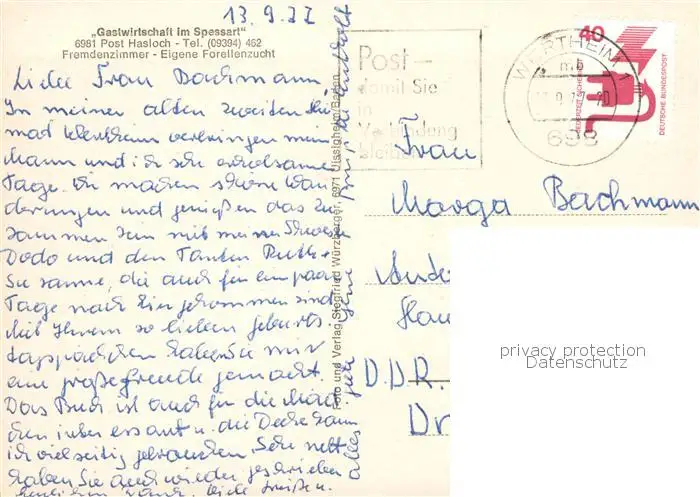 13.9.77
„Gastwirtschaft im Spessart"
6981 Post Hasloch - Tel. (09394) 462
Fremdenzimmer - Eigene Forellenzucht
Liebe Frau Bachmann
In meiner alten zweiten Hei
mat Wertheim verbringen mein
Mann und ich sehr erholsame
Tage. Wir machen schöne Wan
derungen und genießen das Zu
sammen sein mit meiner Schwester
Dodo und den Tanten Ruth
Susanne, die auch für ein paar
Tage nach hier gekommen sind
Mit Ihrem so lieben Geburts
tagspäckchen haben Sie mir
eine große Freude gemacht.
Das Buch ist auch für die Mäd
chen interessant u. die Decke kann
ich vielseitig gebrauchen. Sehr nett
haben Sie auch wieder geschrieben
herzlichen Dank. Viele Grüße u.
alles Gute
Foto und Verlag Siegfried Würzberger, 6971 Uissigheim/Baden
Post –
damit Sie
in
Verbindung
bleiben
WERTHEIM 1
mb
13.9.77-20
698
40
JEDERZEIT SICHERHEIT
DEUTSCHE BUNDESPOST
Frau
Marga Bachmann
D.D.R.
Dr
privacy protection
Datenschutz